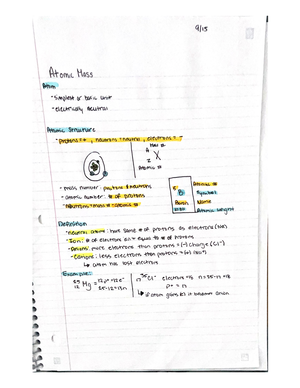 9/15
Atomic Mass
Atom
- Simplest or basic unit
- electrically neutral
Atomic Structure
- protons = +, neutrons = neutral, electrons = -
Mass #
A
X
Z
Atomic #
- mass number = protons + neutrons
- atomic number: # of protons
- neutrons = mass # - atomic #
Atomic #
Symbol
Name
Atomic weight
Definition
- neutral atom: have same # of protons as electrons
- Ion: # of electrons don't equal to # of protons
- Anion: more electrons than protons = (-) charge (Cl⁻)
- Cation: less electrons than protons = (+)
↳ atom has lost electrons
Example:
25 12 Mg = 12 p⁺ = 12 e⁻
25-12 = 13 n
17 35 Cl⁻ electrons = 18 n = 35-17 = 18
p⁺ = 17
↳ if atom gains e⁻, it becomes anion